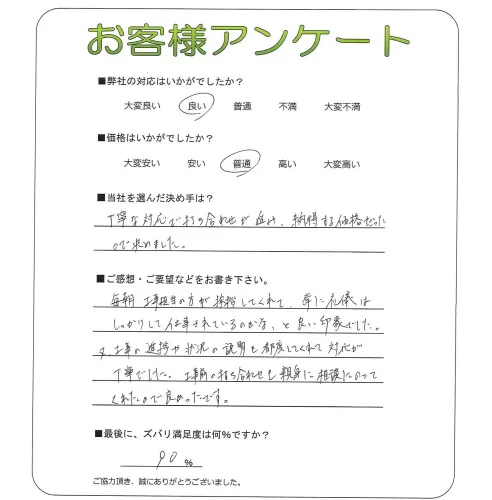 お客様アンケート
■弊社の対応はいかがでしたか？
大変良い 良い 普通 不満 大変不満
■価格はいかがでしたか？
大変安い 安い 普通 高い 大変高い
■当社を選んだ決め手は？
丁寧な対応で打ち合わせが進み、納得する価格だった
ので決めました。
■ご感想・ご要望などをお書き下さい。
毎朝 工事担当の方が挨拶してくれて、常に礼儀は
しっかりして仕事されているのかな、と良い印象でした。
又、工事の進捗や状況の説明も都度してくれて対応が
丁寧でした。 工事前の打ち合わせも親身に相談にのって
くれたので良かったです。
■最後に、ズバリ満足度は何％ですか？
90 ％
ご協力頂き、誠にありがとうございました。